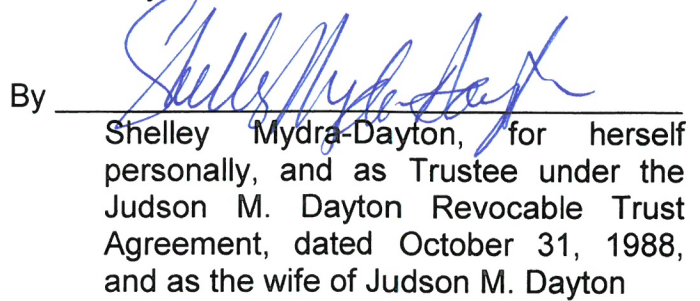 Shelley Mydra-Dayton
By
Shelley Mydra-Dayton, for herself
personally, and as Trustee under the
Judson M. Dayton Revocable Trust
Agreement, dated October 31, 1988,
and as the wife of Judson M. Dayton